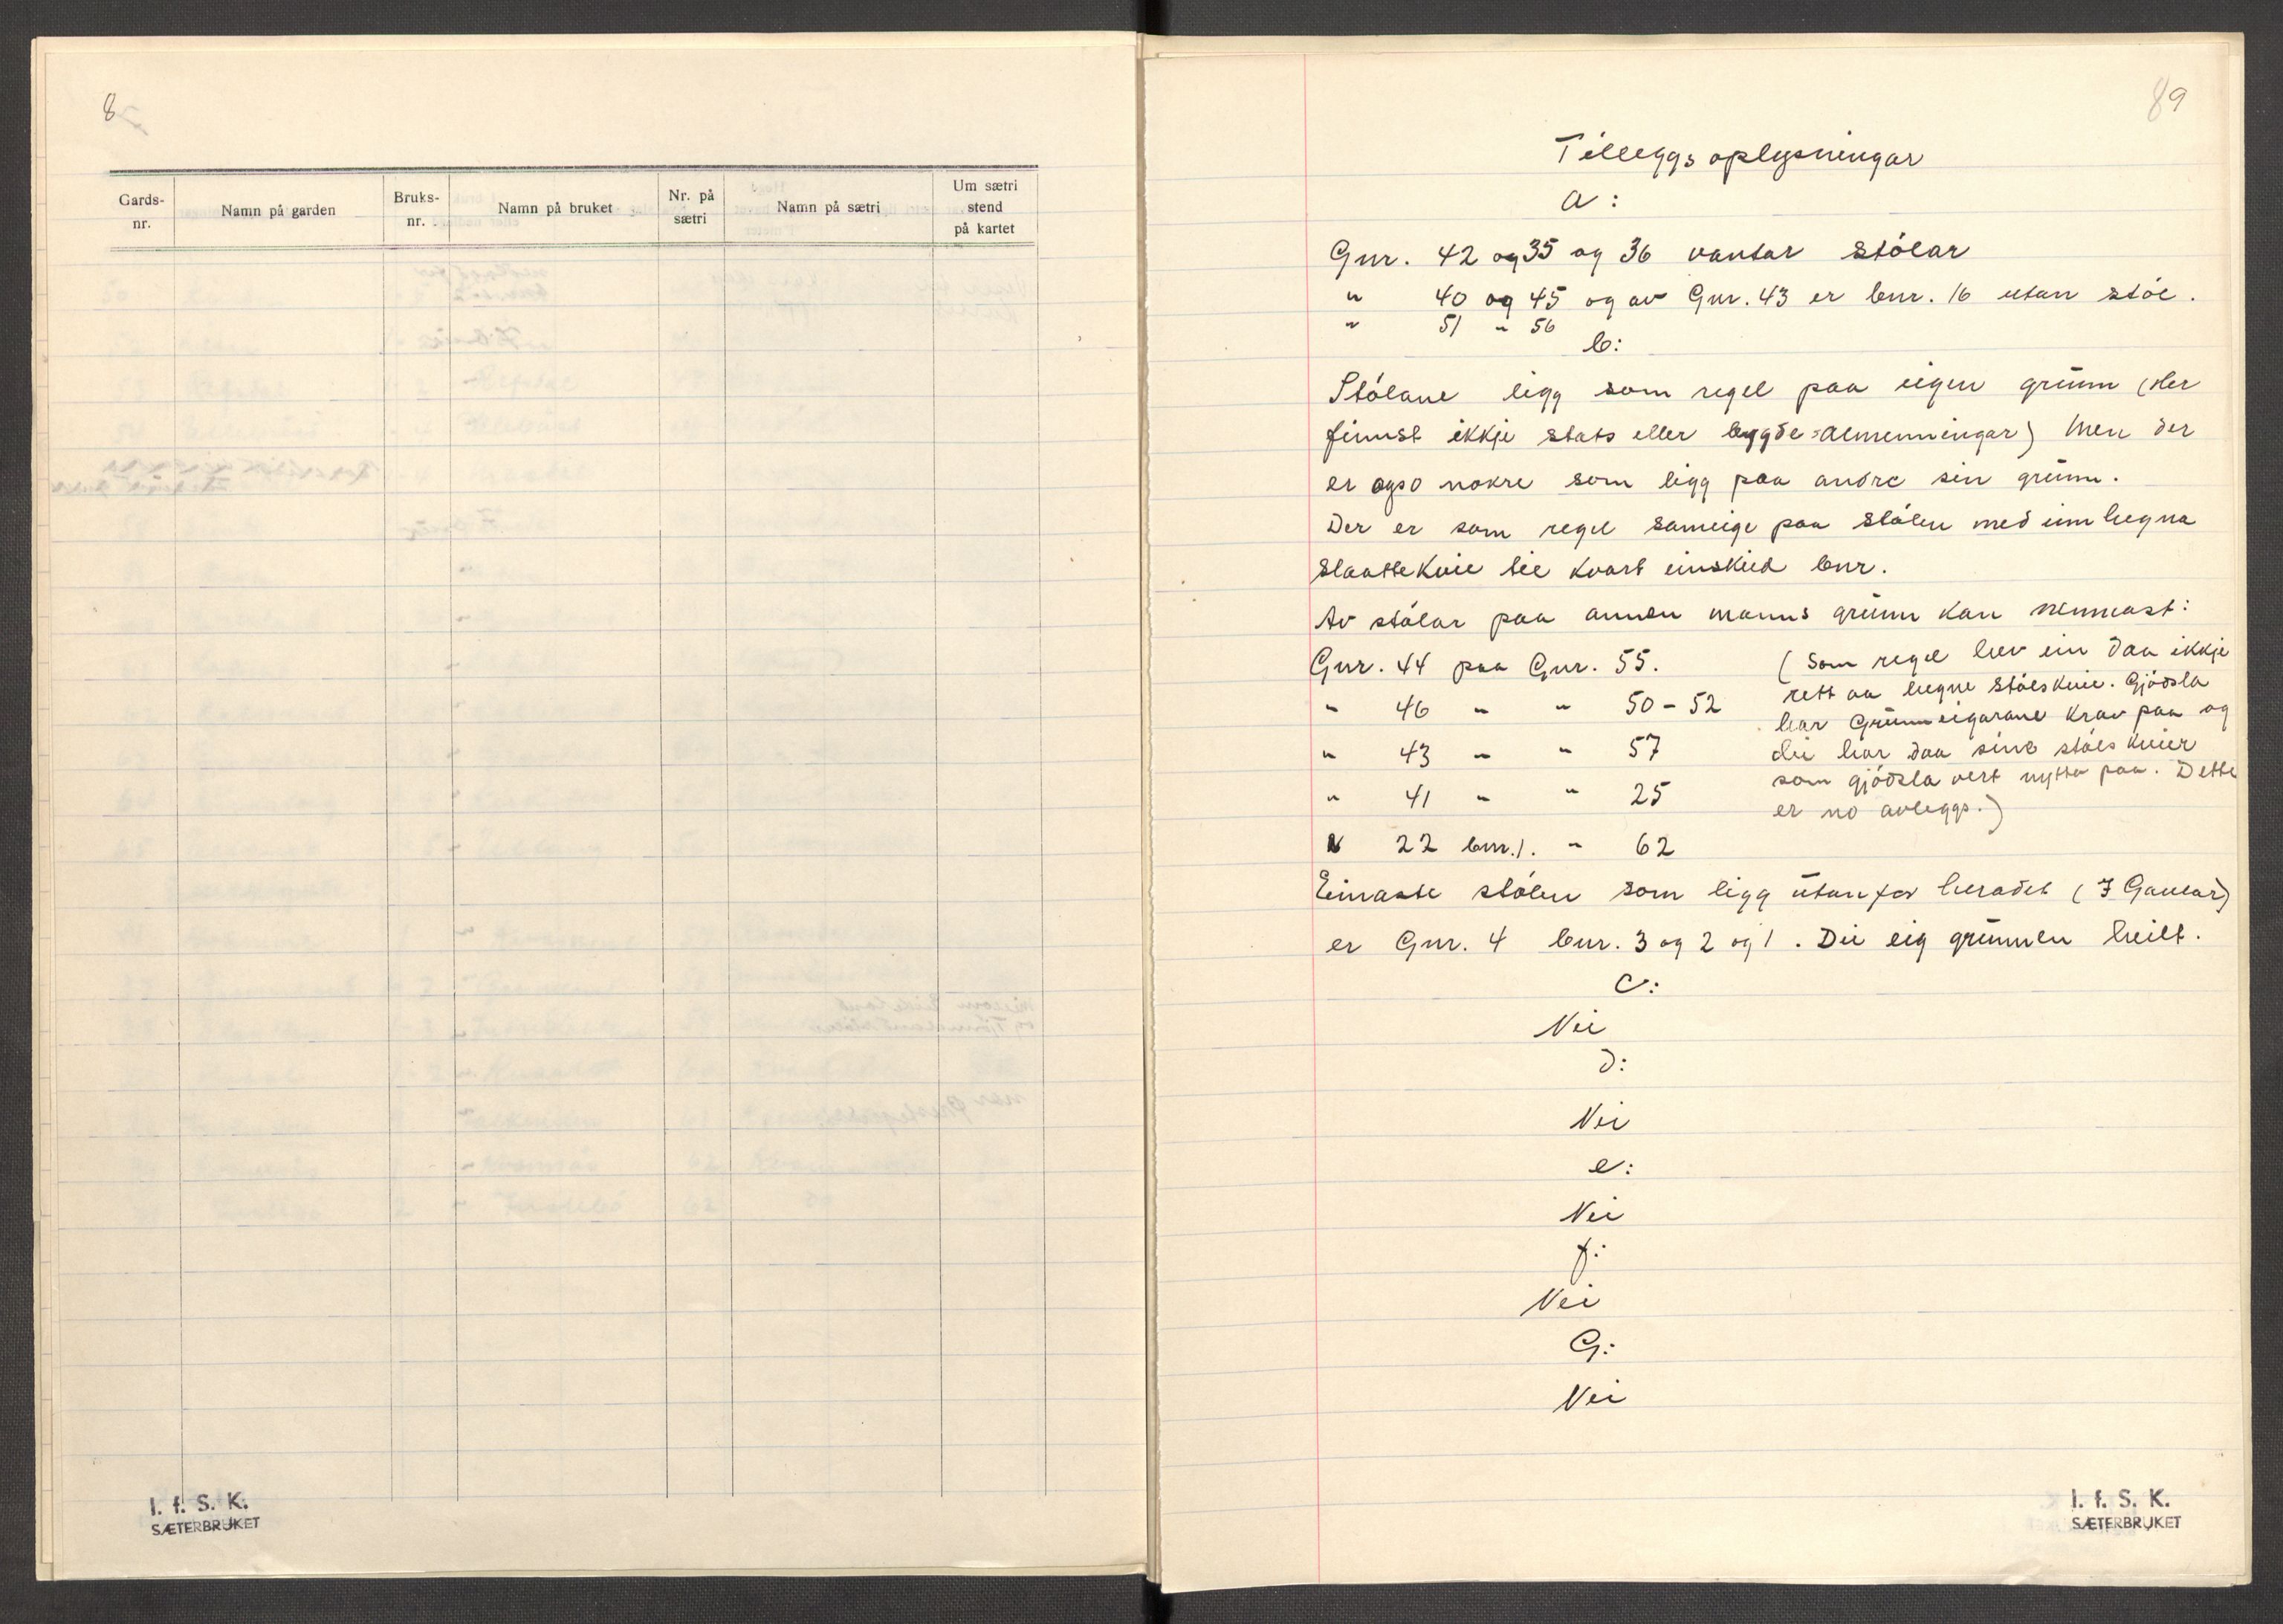 8
Gards-nr.	Namn på garden	Bruks-nr.	Namn på bruket	Nr. på sætri	Namn på sætri	Um sætri stend på kartet
I. f. S. K.
SÆTERBRUKET
89
Tilleggsoplysningar
a:
Gnr. 42 og 35 og 36 vantar stólar
" 40 og 45 og av Gnr. 43 er bnr. 16 utan stól.
" 51 " 56
b:
Stólane ligg som regel paa eigen grunn (Her
finnst ikkje stats eller bygde-almenningar) Men der
er ogso nokre som ligg paa andre sin grunn.
Der er som regel sameige paa stólen med innhegna
slaattekvie til kvart einskild bnr.
Av stólar paa annan manns grunn kan nemnast:
Gnr. 44 paa Gnr. 55.
" 46 " " 50-52
" 43 " " 57
" 41 " " 25
" 22 bnr. 1. " 62
(Som regel hev ein daa ikkje
rett aa hegne stólskvie. Gjødsla
har Grunneigarane krav paa og
dei har daa sine stóls kvier
som gjødsla vert nytta paa. Dette
er no avleggs.)
Einaste stólen som ligg utanfor heradet (I Gaular)
er Gnr. 4 bnr. 3 og 2 og 1. Dei eig grunnen heilt.
c:
Nei
d:
Nei
e:
Nei
f:
Nei
G:
Nei
I. f. S. K.
SÆTERBRUKET